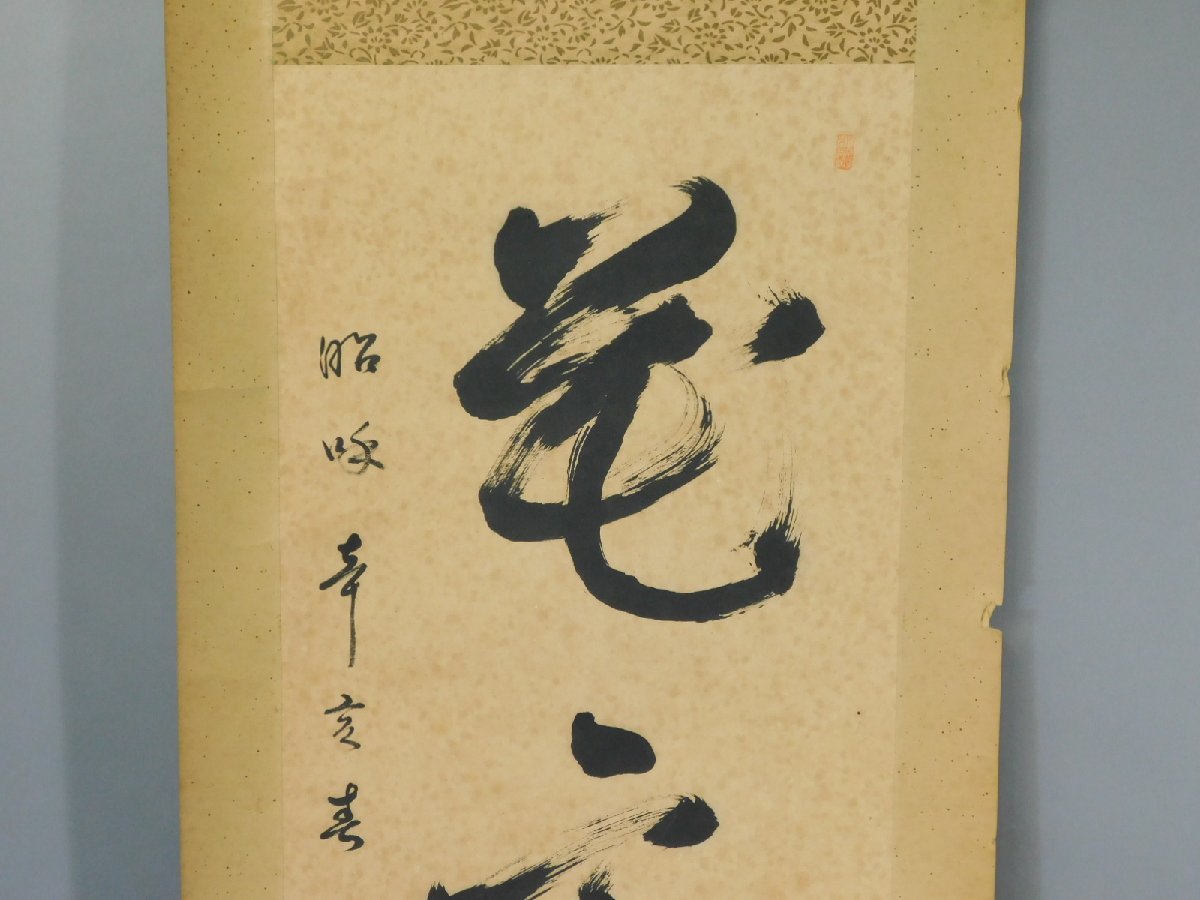 花
昭和辛亥春